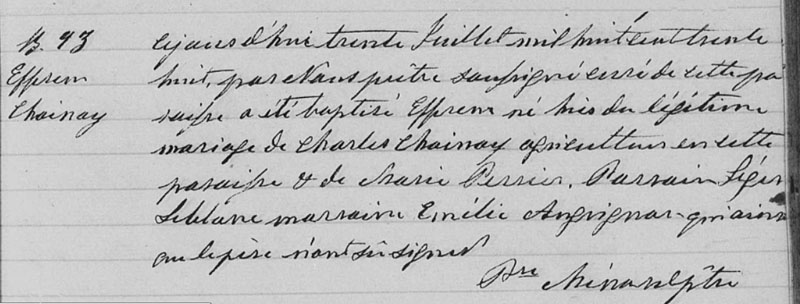 B. 93
Effrem
Chainay
Cejourd'hui trente Juillet mil huit cent trente
huit, par Nous prêtre soussigné curé de cette pa
roisse a été baptisé Effrem né hier du légitime
mariage de Charles Chainay agriculteur en cette
paroisse & de Marie Perrier. Parrain Léger
Leblanc marraine Emélie qui ainsi
que le père n'ont su signer
Ptre